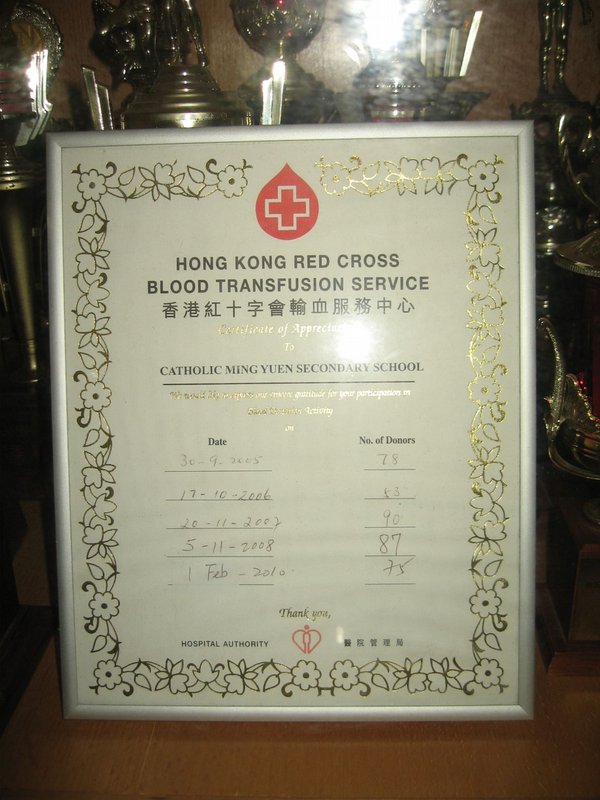 HONG KONG RED CROSS
BLOOD TRANSFUSION SERVICE
香港紅十字會輸血服務中心
Certificate of Appreciation
To
CATHOLIC MING YUEN SECONDARY SCHOOL
We would like to express our sincere gratitude for your participation in
Blood Donation Activity
on
Date No. of Donors
30-9-2005 78
17-10-2006 83
20-11-2007 90
5-11-2008 87
1 Feb - 2010 75
Thank you,
HOSPITAL AUTHORITY 醫院管理局